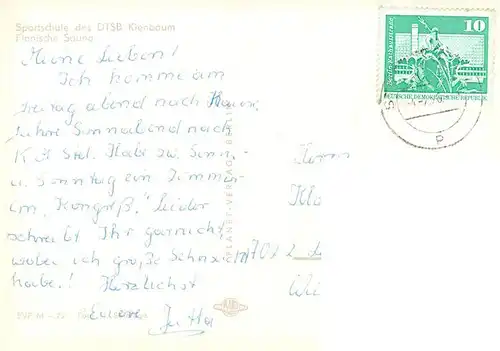 Sportschule des DTSB Kienbaum
Finnische Sauna
Meine Lieben!
Ich komme am
Freitag abend nach Hause,
fahre Sonnabend nach
Habe zw. Sonn.
u. Sonntag ein Zimmer
im "Kongreß". Leider
schreibt Ihr garnicht,
wobei ich große Sehnsucht
habe! Herzlichst
Eure Jutta
PLANET-VERLAG
Herrn
Kla
701
10
DEUTSCHE DEMOKRATISCHE REPUBLIK
P